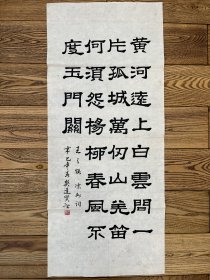 黄河遠上白雲間一
片孤城萬仞山羌笛
何須怨楊柳春風不
度玉門關
王之渙 涼州詞